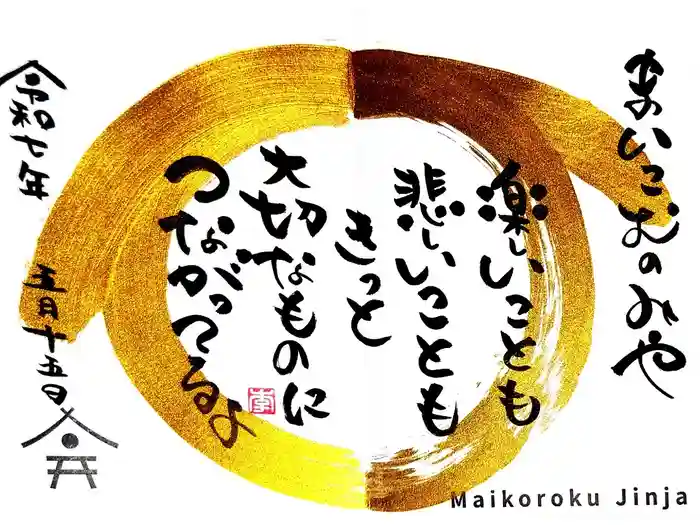 まいころむのみや
楽しいことも
悲しいことも
きっと
大切なものに
つながってるよ
令和七年
五月十五日
Maikoroku Jinja